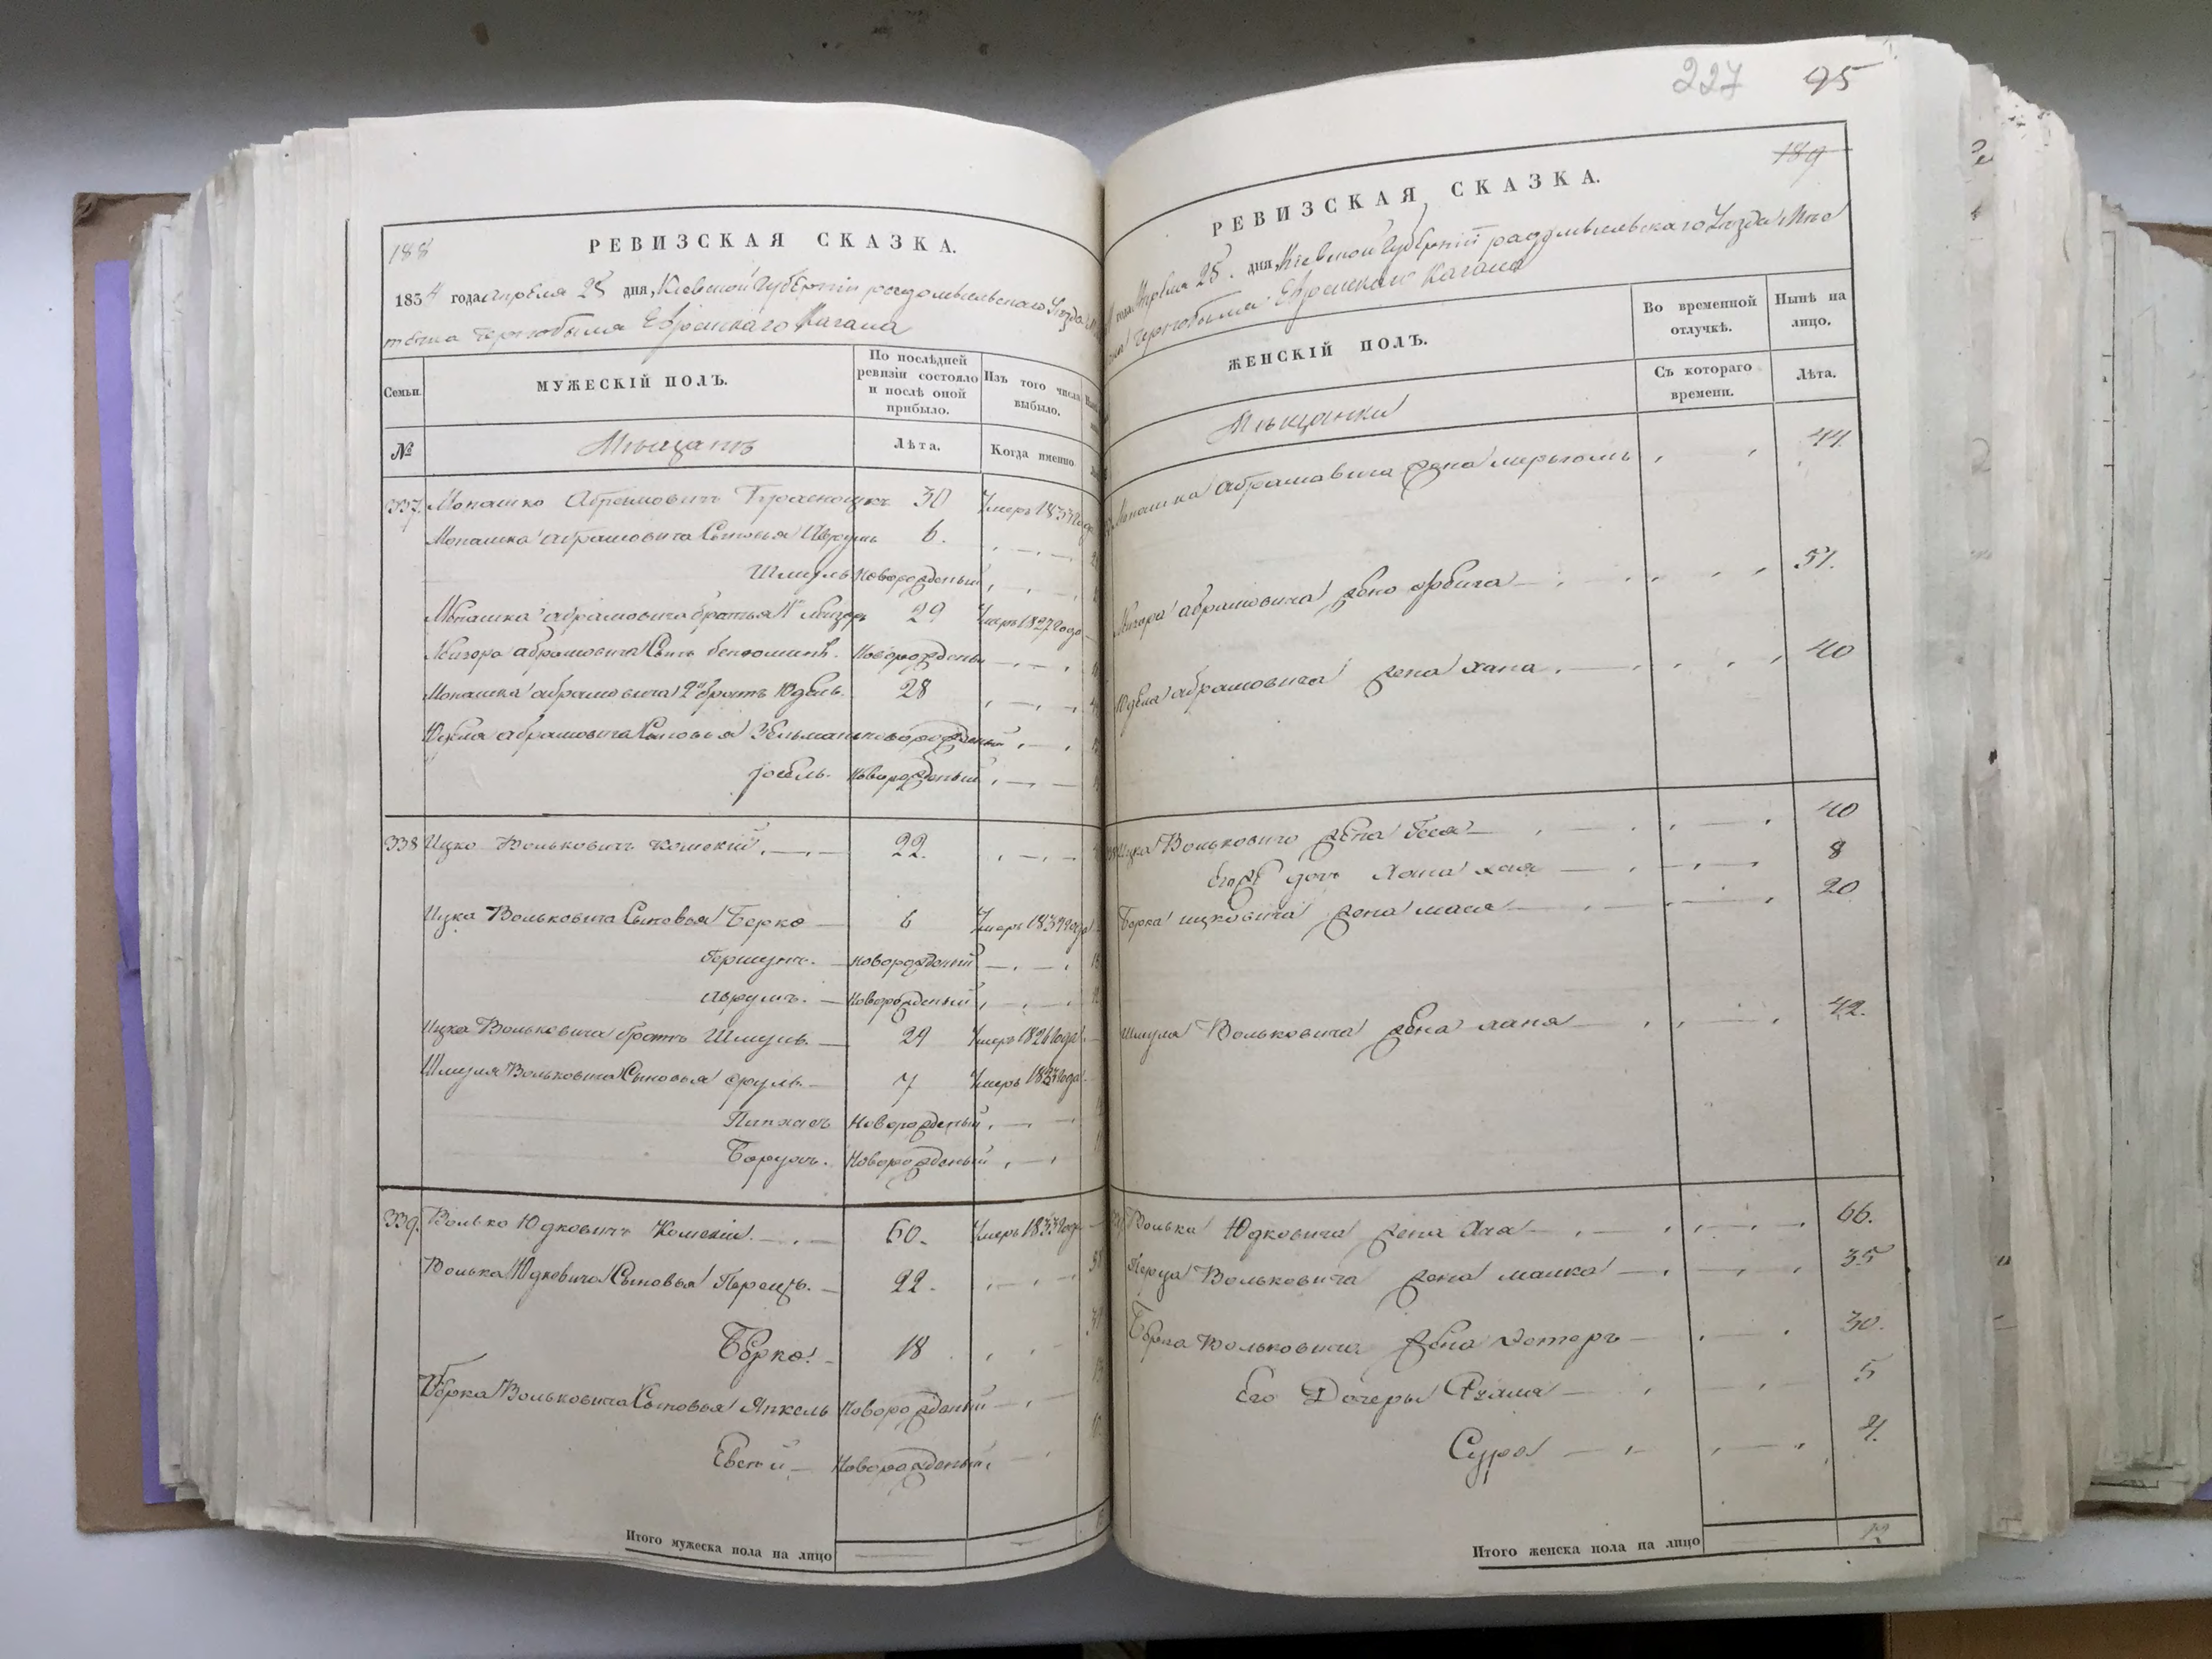 188
РЕВИЗСКАЯ СКАЗКА.
1834 года Апреля 25 дня, Киевской Губернии радомысльского Уезда
течка Чернобыля Еврейскаго Кагала
Семьи.
МУЖЕСКІЙ ПОЛЪ.
По послѣдней ревизіи состояло и послѣ оной прибыло.
Изъ того числа выбыло.
№
Мещанъ
Лѣта.
Когда именно
337. Монашко Абрамовичъ 30 Умеръ 183
Монашка абрамовича Сыновья Аврумъ 6.
Шмуль Новорожденый
Монашка абрамовича братья 1й Лейзоръ 29 Умеръ 1827 года
Лейзора абрамовича Сынъ бенюминъ. Новорожденый
Монашка абрамовича 2й братъ Юдель. 28
Юделя абрамовича Сыновья Зельманъ новорожденый
Іосель. Новорожденый
338 Ицко Вольковичъ Комский. 22.
Ицка Вольковича Сыновья Берко 6 Умеръ 1834 года
Гершунъ. новорожденый
Аврумъ. Новорожденый
Ицка Вольковича братъ Шмуль. 24 Умеръ 1826 года
Шмуля Вольковича Сыновья сруль. 7 Умеръ 183 года
Пинхасъ Новорожденый
Борухъ. Новорожденый
339. Волько Юдковичъ Комский. 60. Умеръ 1833 года
Волька Юдковича Сыновья Перецъ. 22.
Берко. 18
Берка Вольковича Сыновья Янкель Новорожденый
Евсей Новорожденый
Итого мужеска пола на лицо
227 95
189
РЕВИЗСКАЯ СКАЗКА.
Апреля 25. дня, Киевской Губерніи радомысльскаго Уезда Мес
Чернобыля Еврейскаго Кагала
ЖЕНСКІЙ ПОЛЪ.
Во временной отлучкѣ.
Нынѣ на лицо.
Съ котораго времени.
Лѣта.
Мещанки
Монашка абрамовича жена мирьямъ 44.
Лейзора абрамовича жена 51.
Юделя абрамовича жена хана. 40
Ицка Вольковича жена Бася 40
Егожъ дочь Хана хая 8
Берка ицковича жена мася 20
Шмуля Вольковича жена хана 42.
Волька Юдковича жена Хая 66.
Перца Вольковича жена малка 35
Берка Вольковича жена эстеръ 30.
Его Дочеры 5
Сура 4.
Итого женска пола на лицо 12